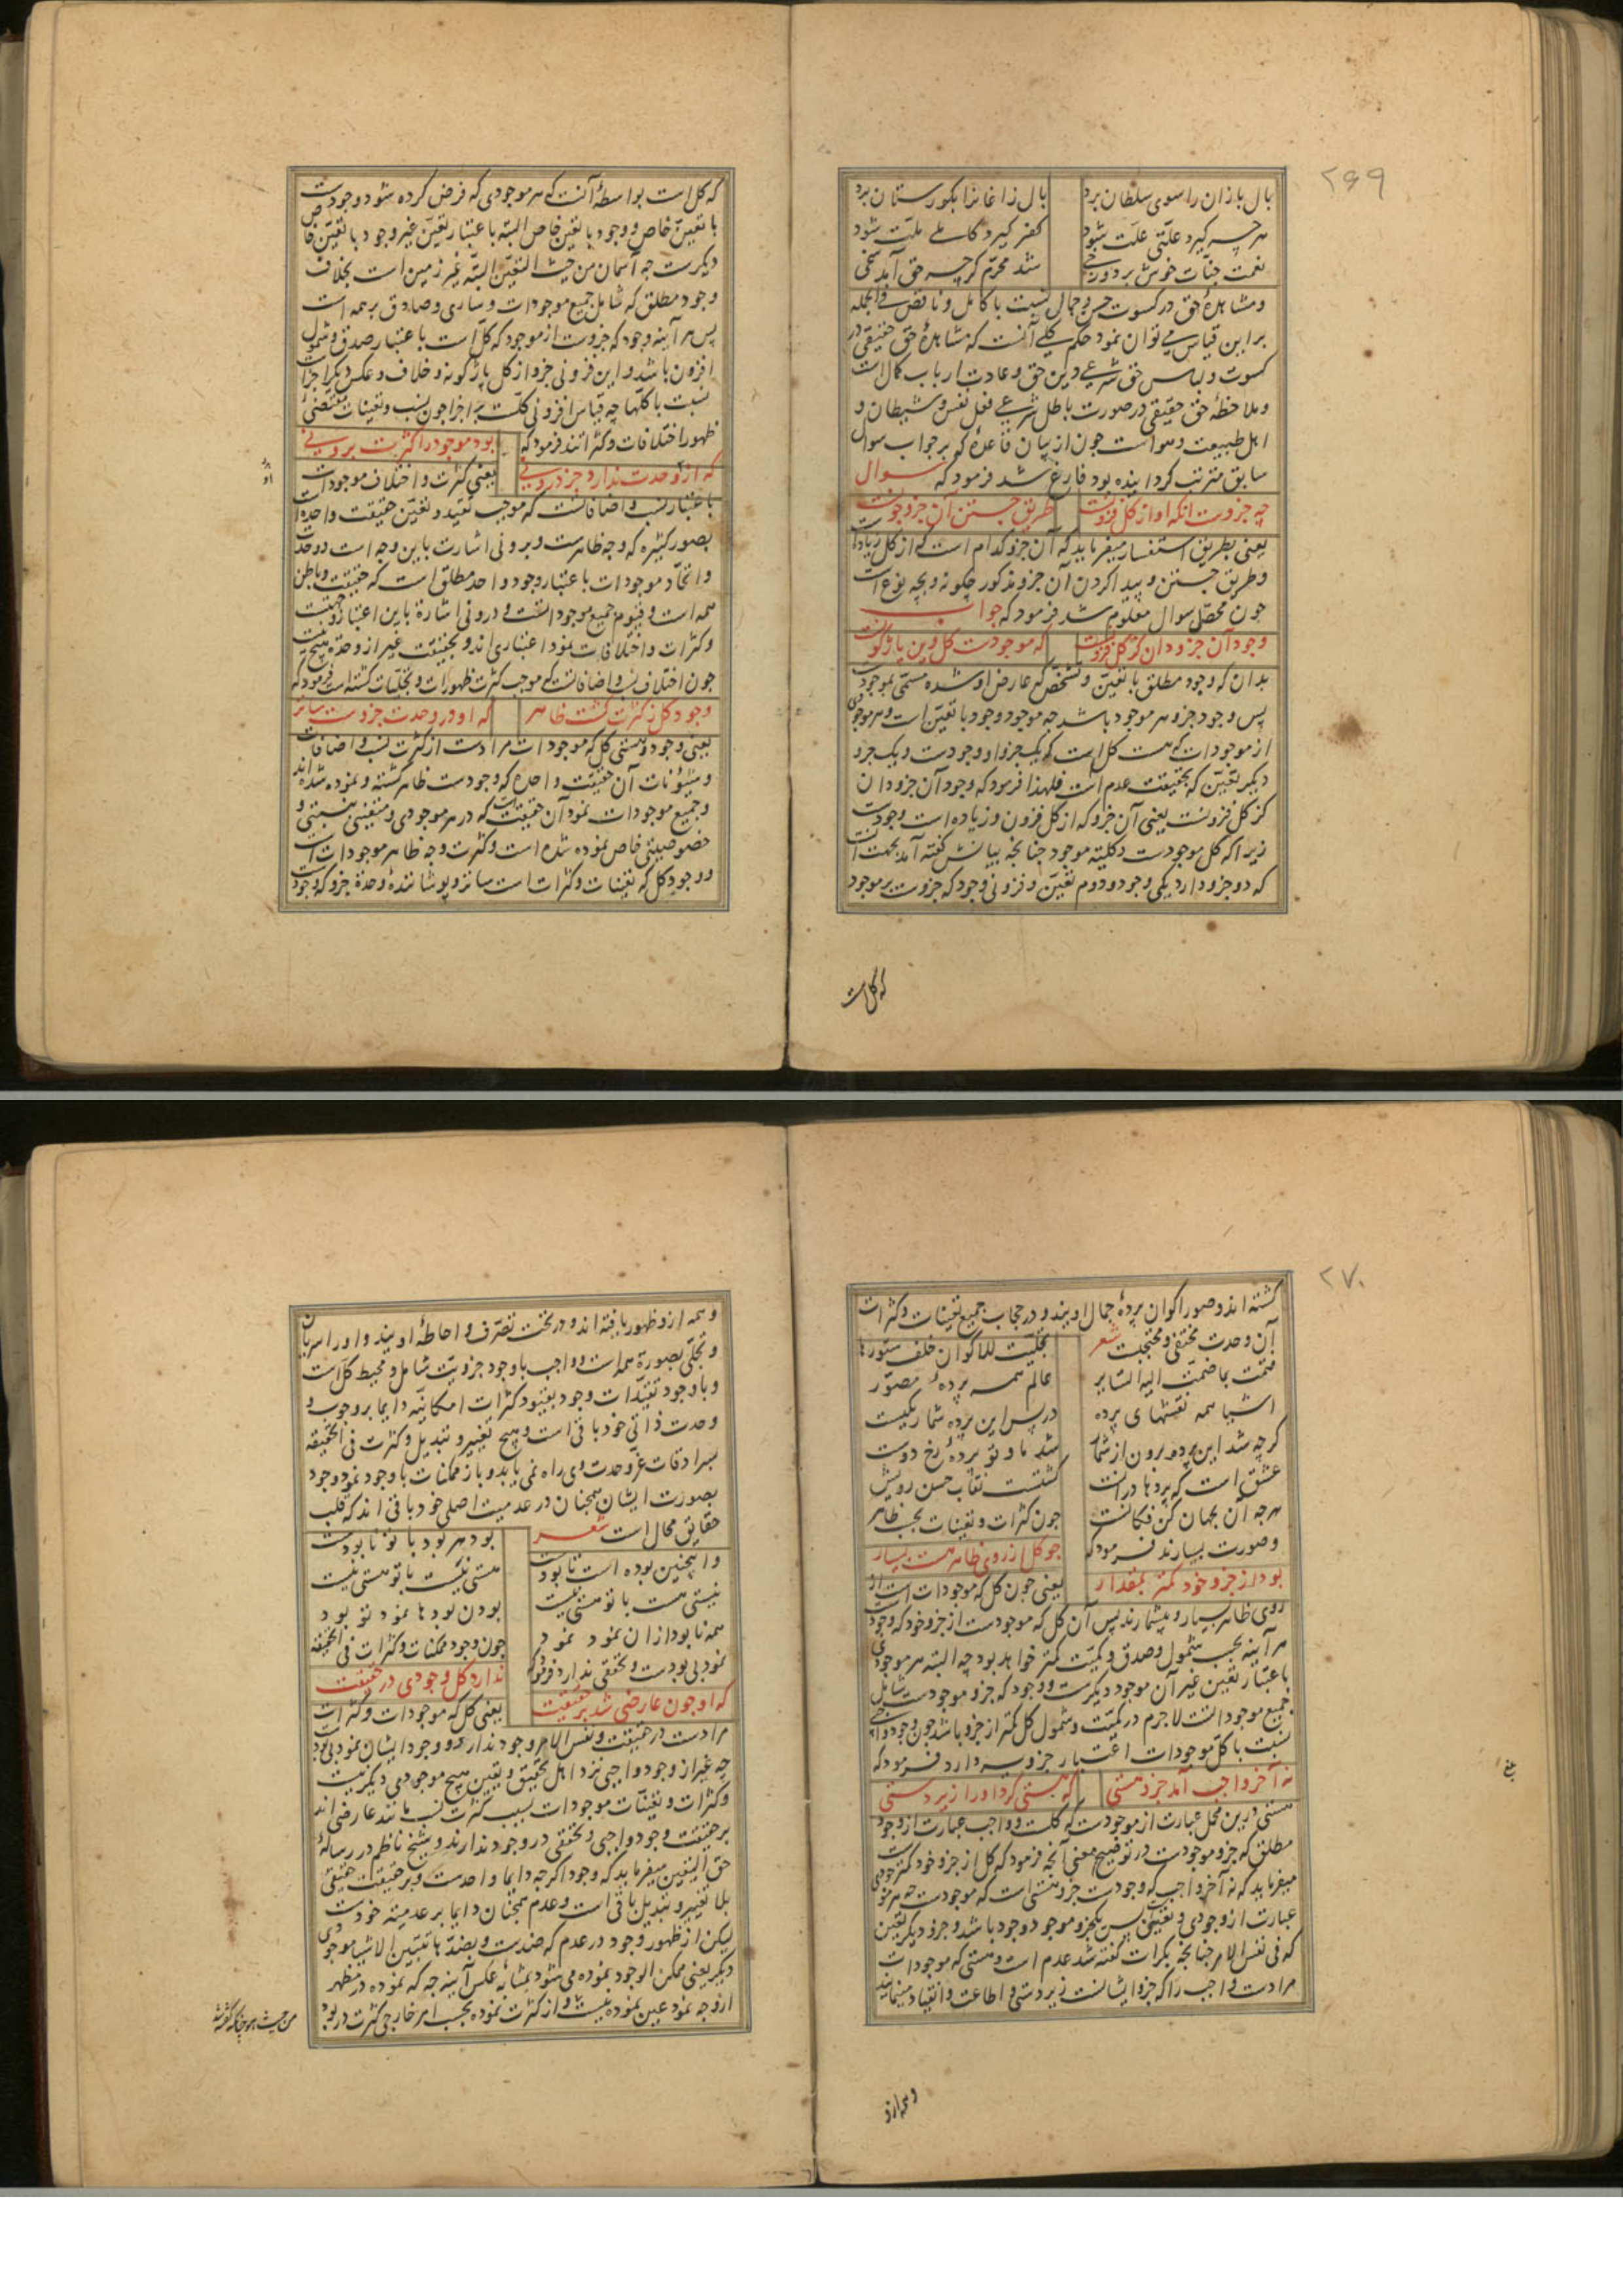 ۲۶۹
بال بازان را سوی سلطان برد بال زاغانرا بکورستان برد
هر چه کیرد علّتی علّت شود کفر کیرد کاملے ملّت شود
نعمت جنّات خوش بر دوزخے شد محرّم کرچه حق آمد سخی
ومشاهدهٔ حق در کسوت حسن وجمال نسبت با کامل وناقص فی الجمله
براین قیاس مے توان نمود حکم کلے آنست که مشاهدهٔ حق حقیقی در
کسوت ولباس حق شرعے دین حق وعادت ارباب کمال است
وملاحظهٔ حق حقیقی در صورت باطل شرعے فعل نفس وشیطان و
اهل طبیعت وهواست جون از بیان قاعدهٔ که بر جواب سوال
سابق مترتب کردانیده بود فارغ شد فرمود که سوال
چه جزوست آنکه او از کل فزونست طریق جستن آن جزو جونست
یعنی بطریق استفسار میفرماید که آن جزو کدام است که از کل زیاد است
وطریق جستن وپیدا کردن آن جزو مذکور چکونه وبچه نوع است
جون محصّل سوال معلوم شد فرمود که جواب
وجود آن جزو دان کز کل فزونست که موجودست کل وین باژکونست
بدان که وجود مطلق با تعیّن وتشخّص که عارض او شده مسمّی بموجود است
پس وجود جزو هر موجود باشد چه موجود وجود با تعیّن است وهر موجودی
از موجودات که هست کل است که یک جزو او وجودست ویک جزو
دیکر تعیّن که بحقیقت عدم است فلهذا فرمود که وجود آن جزو دان
کز کل فزونست یعنی آن جزو که از کل فزون وزیاده است وجودست
زیرا که کل موجودست وکلیّت موجود جنانجه بیانش کفته آمد بجهت آنست
که دو جزو دارد یکی وجود ودوم تعیّن وفزونی وجود که جزوست بر موجود
که کل است
که کل است بواسطهٔ آنست که هر موجودی که فرض کرده شود وجودست
با تعیّن خاص ووجود با تعیّن خاص البتّه باعتبار تعیّن غیر وجود با تعیّن خاص
دیکرست چه آسمان من حیث التعیّن البتّه غیر زمین است بخلاف
وجود مطلق که شامل جمیع موجودات وساری وصادق بر همه است
پس هر آینه وجود که جزوست از موجود که کل است باعتبار صدق وشمول
افزون باشد واین فزونی جزو از کل باژکونه وخلاف وعکس دیکر اجزاست
نسبت با کلّها چه قیاس افزونی کلّست بر اجزا جون نسب وتعینات مقتضی
ظهور اختلافات وکثراتند فرمود که بود موجود را کثرت برونی
که از وحدت ندارد جز درونی یعنی کثرت واختلاف موجودات
باعتبار نسب واضافاتست که موجب تقیّد وتعیّن حقیقت واحده است
بصور کثیره که وجه ظاهرست وبرونی اشارت باین وجه است ووحدت
واتّحاد موجودات باعتبار وجود واحد مطلق است که حقیقت وباطن
همه است وقیّوم جمیع موجوداتست ودرونی اشارة باین اعتبار وجهتست
وکثرات واختلافات نمود اعتباری اند وبحقیقت غیر از وحدة هیچ نیست
جون اختلاف نسب واضافاتست که موجب کثرت ظهورات وتجلّیات کشته است فرمود که
وجود کل ز کثرت کشت ظاهر که او در وحدت جزوست ساتر
یعنی وجود وهستی کل که موجودات مرادست از کثرت نسب واضافات
وشئونات آن حقیقت واحده که وجودست ظاهر کشته ونموده شده اند
وجمیع موجودات نمود آن حقیقت است که در هر موجودی ومتعیّنی بنسبتی و
خصوصیتی خاص نموده شده است وکثرت وجه ظاهر موجودات است
ووجود کل که تعیّنات وکثرات است ساتر وپوشانندهٔ وحدة جزو که وجود
۲۷۰
کشته اند وصور اکوان پردهٔ جمال اویند ودر حجاب جمیع تعینات وکثرات
آن وحدت مختفی ومحتجبست شعر تجلّیت للاکوان خلف ستورها
فنمّت بما ضمّت الیه الستایر عالم همه پردهٔ مصوّر
اشیا همه نقشهای پرده در پس این پرده شمار یکیست
کرچه شد این پرده برون از شمار شد ما وتو پردهٔ رخ دوست
عشق است که پردها درانست کشتست نقاب حسن رویش
هرجه آن بجهان کن فکانست جون کثرات وتعینات بحسب ظاهر
وصورت بسیارند فرمود که جو کل از روی ظاهر هست بسیار
بود از جزو خود کمتر بمقدار یعنی جون کل که موجودات است از
روی ظاهر بسیار وبیشمارند پس آن کل که موجودست از جزو خود که وجود است
هر آینه بحسب شمول وصدق وکمیّت کمتر خواهد بود چه البته هر موجودی
باعتبار تعین غیر آن موجود دیکرست ووجود که جزو موجودست شامل
جمیع موجوداتست لاجرم در کمیّت وشمول کل کمتر از جزو باشد جون وجود واجبی
نسبت با کل موجودات اعتبار جزویه دارد فرمود که
نه آخر واجب آمد جزو هستی که هستی کرد او را زیر دستی
هستی درین محل عبارت از موجودست که کلّست وواجب عبارت از وجود
مطلق که جزو موجودست در توضیح معنی آنجه فرمود که کل از جزو خود کمترست
میفرماید که نه آخر واجب که وجودست جزو هستی است که موجودست چه هر موجودی
عبارت از وجودی وتعیّنیست پس یکجزو موجود وجود باشد وجزو دیکر تعین
که فی نفس الامر جنانجه بکرات کفته شد عدم است وهستی که موجودات
مرادست واجب را که جزو ایشانست زیر دستی واطاعت وانقیاد مینمایند
وهمه ازو
وهمه ازو ظهور یافته اند ودر تحت تصرّف واحاطهٔ اویند واو را سریان
وتجلّی بصورة همه است وواجب با وجود جزویّت شامل ومحیط کل است
وبا وجود تقیّدات وجود بقیود کثرات امکانیّه دایما بر وجوب و
وحدت ذاتی خود باقی است وهیچ تغییر وتبدیل وکثرت فی الحقیقه
بسرادقات عزّ وحدت وی راه نمی یابد وباز ممکنات با وجود نمود وجود
بصورت ایشان همجنان در عدمیت اصلی خود باقی اند که قلب
حقایق محال است شعر بود هر بود با تو نابودست
وا پنچنین بوده است تا بودت هستی نیست با تو هستی نیست
نیستی هست با تو هستی نیست بودن بودها نمود تو بود
همه نابود ازان نمود نمود جون وجود ممکنات وکثرات فی الحقیقه
نمود بی بودست وتحقّقی ندارد فرمود که ندارد کل وجودی در حقیقت
که او جون عارضی شد بر حقیقت یعنی کل که موجودات وکثرات
مرادست در حقیقت ونفس الامر وجود ندارد ووجود ایشان نمود بی بود است
چه غیر از وجود واجبی نزد اهل تحقیق ویقین هیچ موجودی دیکر نیست
وکثرات وتعیّنات موجودات بسبب کثرت نسب مانند عارضی اند
بر حقیقت وجود واجبی وتحقّقی در وجود ندارند وشیخ ناظم در رسالهٔ
حق الیقین میفرماید که وجود اکرچه دایما واحدست وبر حقیقت حقیقی
بلا تغییر وتبدیل باقی است وعدم همجنان دایما بر عدمیّت خودست
لیکن از ظهور وجود در عدم که ضدست وبضدّها تتبیّن الاشیا موجودی
دیکر یعنی ممکن الوجود نموده می شود بمثابهٔ عکس آینه چه که نموده در مظهر
ازوجه نمود عین نموده نیست واز کثرت نموده بحسب امر خارجی کثرت در بود